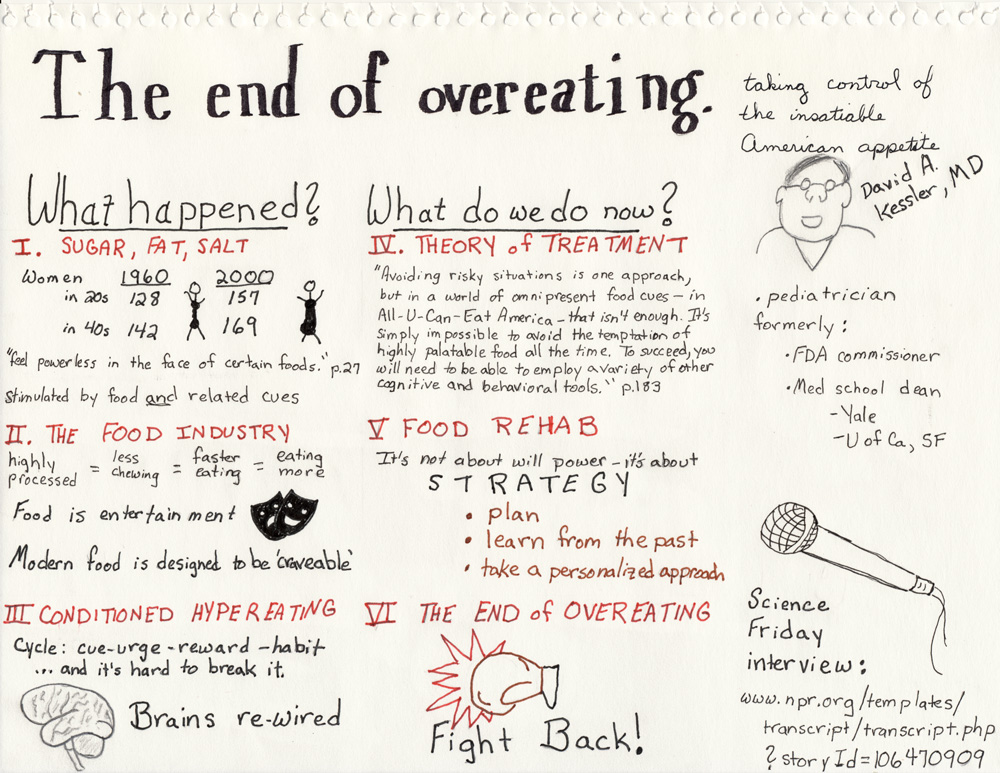 The end of overeating.
taking control of
the insatiable
American appetite
David A.
Kessler, MD
. pediatrician
formerly:
• FDA commissioner
• Med school dean
- Yale
- U of Ca, SF
What happened?
I. SUGAR, FAT, SALT
Women 1960 2000
in 20s 128 157
in 40s 142 169
"feel powerless in the face of certain foods." p.27
Stimulated by food and related cues
II. THE FOOD INDUSTRY
highly processed = less chewing = faster eating = eating more
Food is entertainment
Modern food is designed to be 'craveable'
III CONDITIONED HYPEREATING
Cycle: cue-urge-reward-habit
... and it's hard to break it.
Brains re-wired
What do we do now?
IV. THEORY of TREATMENT
"Avoiding risky situations is one approach,
but in a world of omnipresent food cues - in
All-U-Can-Eat America - that isn't enough. It's
simply impossible to avoid the temptation of
highly palatable food all the time. To succeed, you
will need to be able to employ a variety of other
cognitive and behavioral tools." p.183
V FOOD REHAB
It's not about will power - it's about
STRATEGY
• plan
• learn from the past
• take a personalized approach
VI THE END of OVEREATING
Fight Back!
Science
Friday
interview:
www.npr.org/templates/
transcript/transcript.php
?storyId=106470909